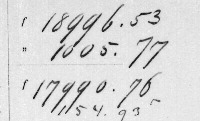 " 18996.53
" 1005.77
" 17990.76
1154.93